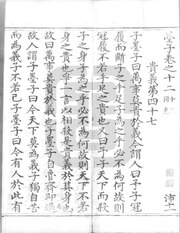 墨子卷之十二
貴義第四十七
子墨子曰萬事莫貴於義今謂人曰予子冠
履而斷子之手足子為之乎必不為何故則
冠履不若手足之貴也又曰予子天下而殺
子之身子為之乎必不為何故則天下不若
身之貴也爭一言以相殺是貴義於其身也
故曰萬事莫貴於義也子墨子自魯即齊過
故人謂子墨子曰今天下莫為義子獨自苦
而為義子不若已子墨子曰今有人於此有